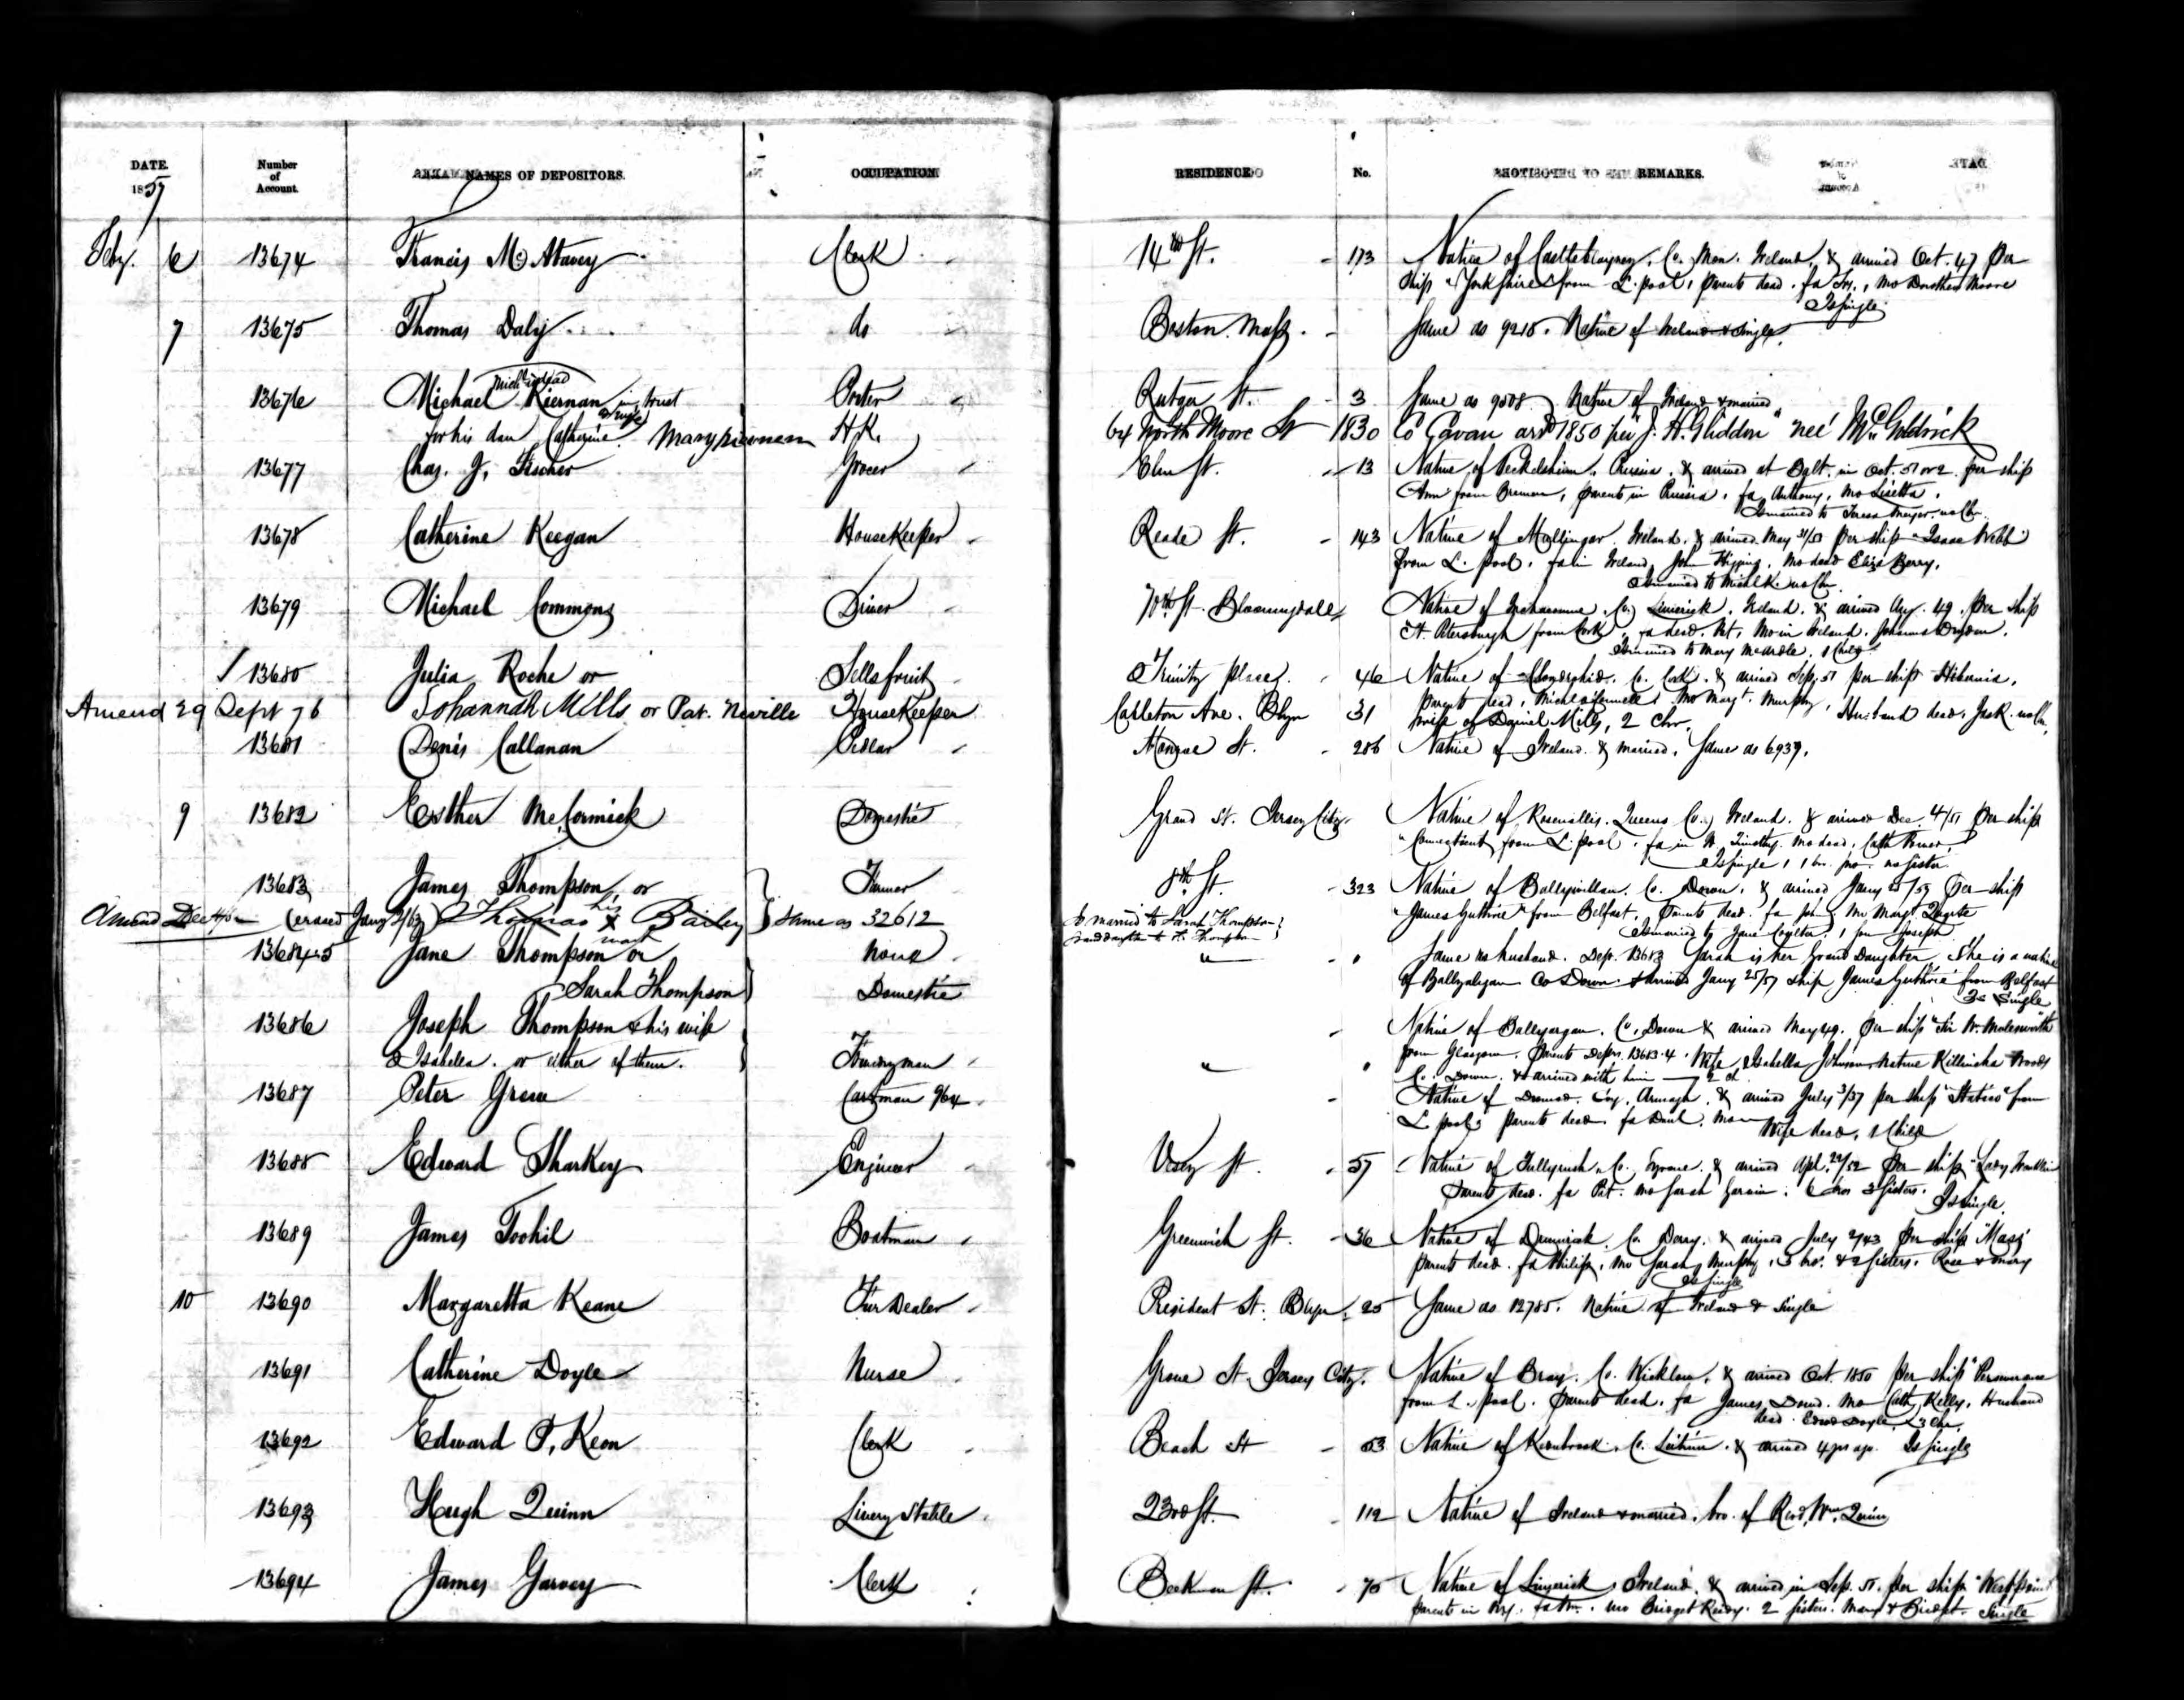 DATE. 1857 Number of Account. NAMES OF DEPOSITORS. OCCUPATION. RESIDENCE No. REMARKS.
Feby. 6 13674 Francis McAtavey Clerk 14th St. 173 Native of Castleblayney, Co. Mon. Ireland, & arrived Oct. 47 per
Ship "Yorkshire" from L.pool, parents dead, fa Frs., mo Dorothea Moore
Is single
7 13675 Thomas Daly do Boston Mass. Same as 9215. Native of Ireland & single.
Mich'l is dead
13676 Michael Kiernan in trust Porter Rutger St. 3 Same as 9508 Native of Ireland & married
for his dau Catherine Mary Kiernan H.K. 64 North Moore St 1830 Co Cavan arrd 1850 per "J. H. Gliddon" neé McGoldrick
13677 Chas. J. Fischer Grocer Elm St. 13 Native of Peckelsheim, Prussia, & arrived at Balt. in Oct. 51 or 2 per ship
Ann from Bremen, parents in Prussia, fa Anthony, mo Lisetta.
Is married to Teresa Meyer, no Chn.
13678 Catherine Keegan HouseKeeper Reade St. 143 Native of Mullingar Ireland, & arrived May 31/51 per ship "Isaac Webb"
from L. pool, fa in Ireland, John Higgins, mo dead Eliza Berry,
Is married to Michl K. no Chn.
13679 Michael Commons Driver 70th St. Bloomingdale Native of Co. Limerick, Ireland, & arrived 49. per ship
St. Petersburgh from Cork, fa dead, mo in Ireland, Johanna
Is married to Mary McArdle, 1 child
13680 Julia Roche or Sells fruit Trinity place 46 Native of Co. Cork, & arrived Sep. 51 per ship Hibernia,
Amend 29 Sept 76 Johannah Mills or Pat. Neville HouseKeeper Carleton Ave. Blyn 31 parents dead, Michl mo Margt. Murphy, Husband dead, Jack no Chn.
wife of Daniel Mills, 2 Chn.
13681 Denis Callanan Pedlar Monroe St. 286 Native of Ireland & married, Same as 6939.
9 13682 Esther McCormick Domestic Grand St. Jersey City Native of Rosenallis, Queens Co. Ireland, & arrived Dec. 4/51 per ship
"Connecticut" from L. pool, fa in Timothy, mo dead, Cath
Is single, 1 bro. no sister
13683 James Thompson or Farmer 8th St. 323 Native of Co. Down, & arrived Jany 25/57 per ship
Amend Dec (erased Jany 2/63) Thomas his X mark Bailey Same as 32612 is married to Sarah Thompson "James Guthrie" from Belfast, Parents dead, fa John, mo Margt
Granddaughter to Thompson Is married to Jane 1 son Joseph
13684-5 Jane Thompson or None " Same as husband. Dep. 13683 Sarah is her Grand Daughter. She is a native
Sarah Thompson Domestic of Co Down & arrived Jany 25/57 ship James Guthrie from Belfast
Is Single
13686 Joseph Thompson & his wife Native of Co. Down & arrived May 49. per ship "Sir W. Molesworth"
Isabella. or either of them. Foundryman " from Glasgow. Parents Deps. 13683.4. Wife Isabella Johnson, native Killinchy Woods
Co. Down. & arrived with him 2 ch
13687 Peter Grew Cartman 964 Native of Co. Armagh, & arrived July 3/37 per ship from
L. pool, parents dead, fa Danl, mo
Wife dead, 1 Child
13688 Edward Sharkey Engineer Vesey St. 57 Native of Co. Tyrone, & arrived Apl. 22/52 per ship "Lady Franklin"
parents dead, fa Pat. mo Sarah 6 bros 3 sisters.
Is single.
13689 James Toohil Boatman Greenwich St. 36 Native of Co. Derry, & arrived July 2/43 per ship "Mass"
parents dead, fa Philip, mo Sarah Murphy, 3 bro. & 2 sisters, Rose & Mary
Is single
10 13690 Margaretta Keane Fur Dealer President St. Blyn 25 Same as 12785. Native of Ireland & Single
13691 Catherine Doyle Nurse Grove St. Jersey City. Native of Bray, Co. Wicklow, & arrived Oct. 1850 per ship Perseverance
from L. pool. Parents dead, fa James Dowd. mo Cath Kelly, Husband
dead Edwd Doyle, 3 Chn.
13692 Edward P. Keon Clerk Beach St 53 Native of Co. Leitrim, & arrived 4 yrs ago. Is single
13693 Hugh Quinn Livery Stable 23rd St. 112 Native of Ireland & married, bro. of Revd. Wm. Quinn
13694 James Garvey Clerk Beekman St. 75 Native of Limerick, Ireland, & arrived in Sep. 51, per ship "Westpoint"
parents in mo Bridget 2 sisters. Mary & Bridget. Single